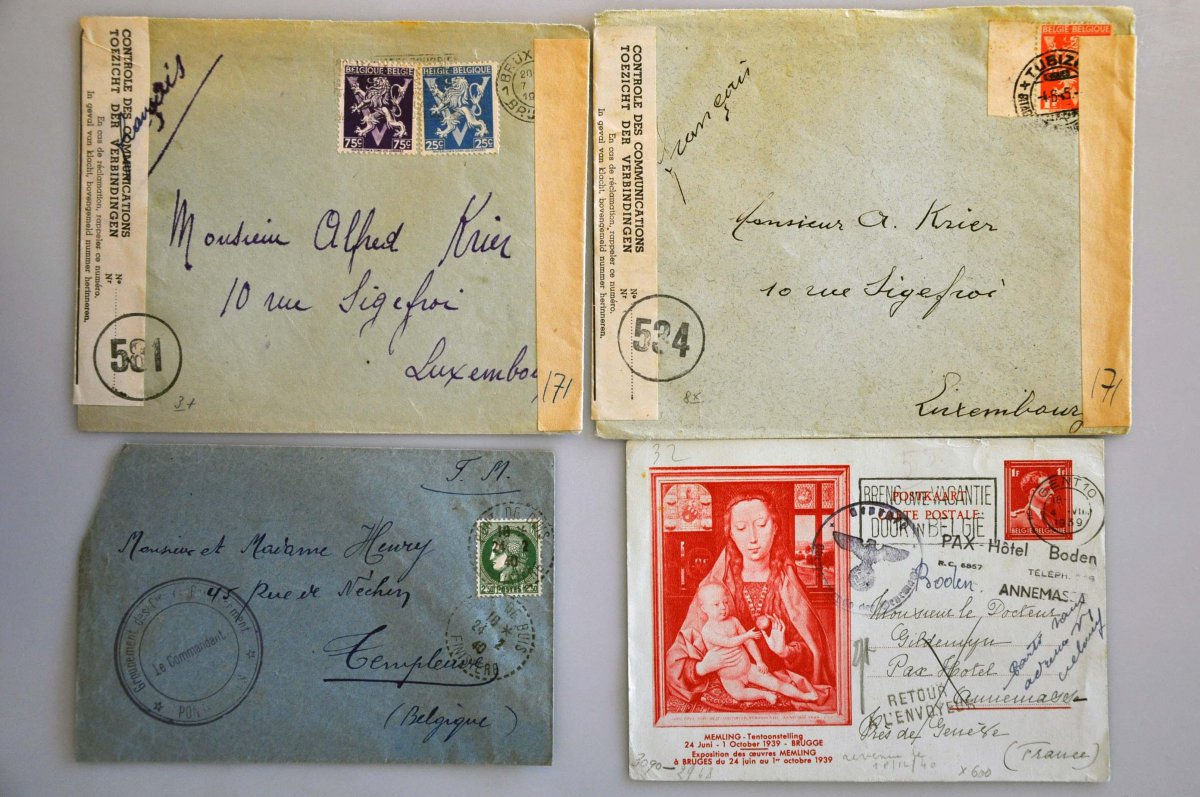 CONTROLE DES COMMUNICATIONS
TOEZICHT DER VERBINDINGEN
En cas de réclamation, rappeler ce numéro.
In geval van klacht, bovengemeld nummer herinneren.
No
Nr
581
français
BELGIQUE-BELGIE
75c 75c
BELGIQUE-BELGIE
25c 25c
BRUX
20
7
19
BRU
Monsieur Alfred Krier
10 rue Sigefroi
Luxembou
171
3+
CONTROLE DES COMMUNICATIONS
TOEZICHT DER VERBINDINGEN
En cas de réclamation, rappeler ce numéro.
In geval van klacht, bovengemeld nummer herinneren.
No
Nr
534
Français
BELGIE BELGIQUE
TUBIZE
Monsieur A. Krier
10 rue Sigefroi
Luxembourg
171
8x
F. M.
Monsieur et Madame Henry
45 Rue de Néchin
Templeuve
(Belgique)
Le Commandant
24 2
40
BUIS
32
POSTKAART
CARTE POSTALE
BRENG UWE VACANTIE
DOOR IN BELGIE
1F 1F
BELGIQUE BELGIE
GENT 10
1939
PAX-Hôtel Boden
R.C. 6867
TÉLÉPH.
ANNEMAS
Boden.
Monsieur le Docteur
Gildemyn
Pax Hotel
Annemasse
Près de Genève
(France)
RETOUR
A L'ENVOYEUR
MEMLING - Tentoonstelling
24 Juni - 1 October 1939 - BRUGGE
Exposition des œuvres MEMLING
à BRUGES du 24 juin au 1er octobre 1939
revenue le
18/12/40
x 600